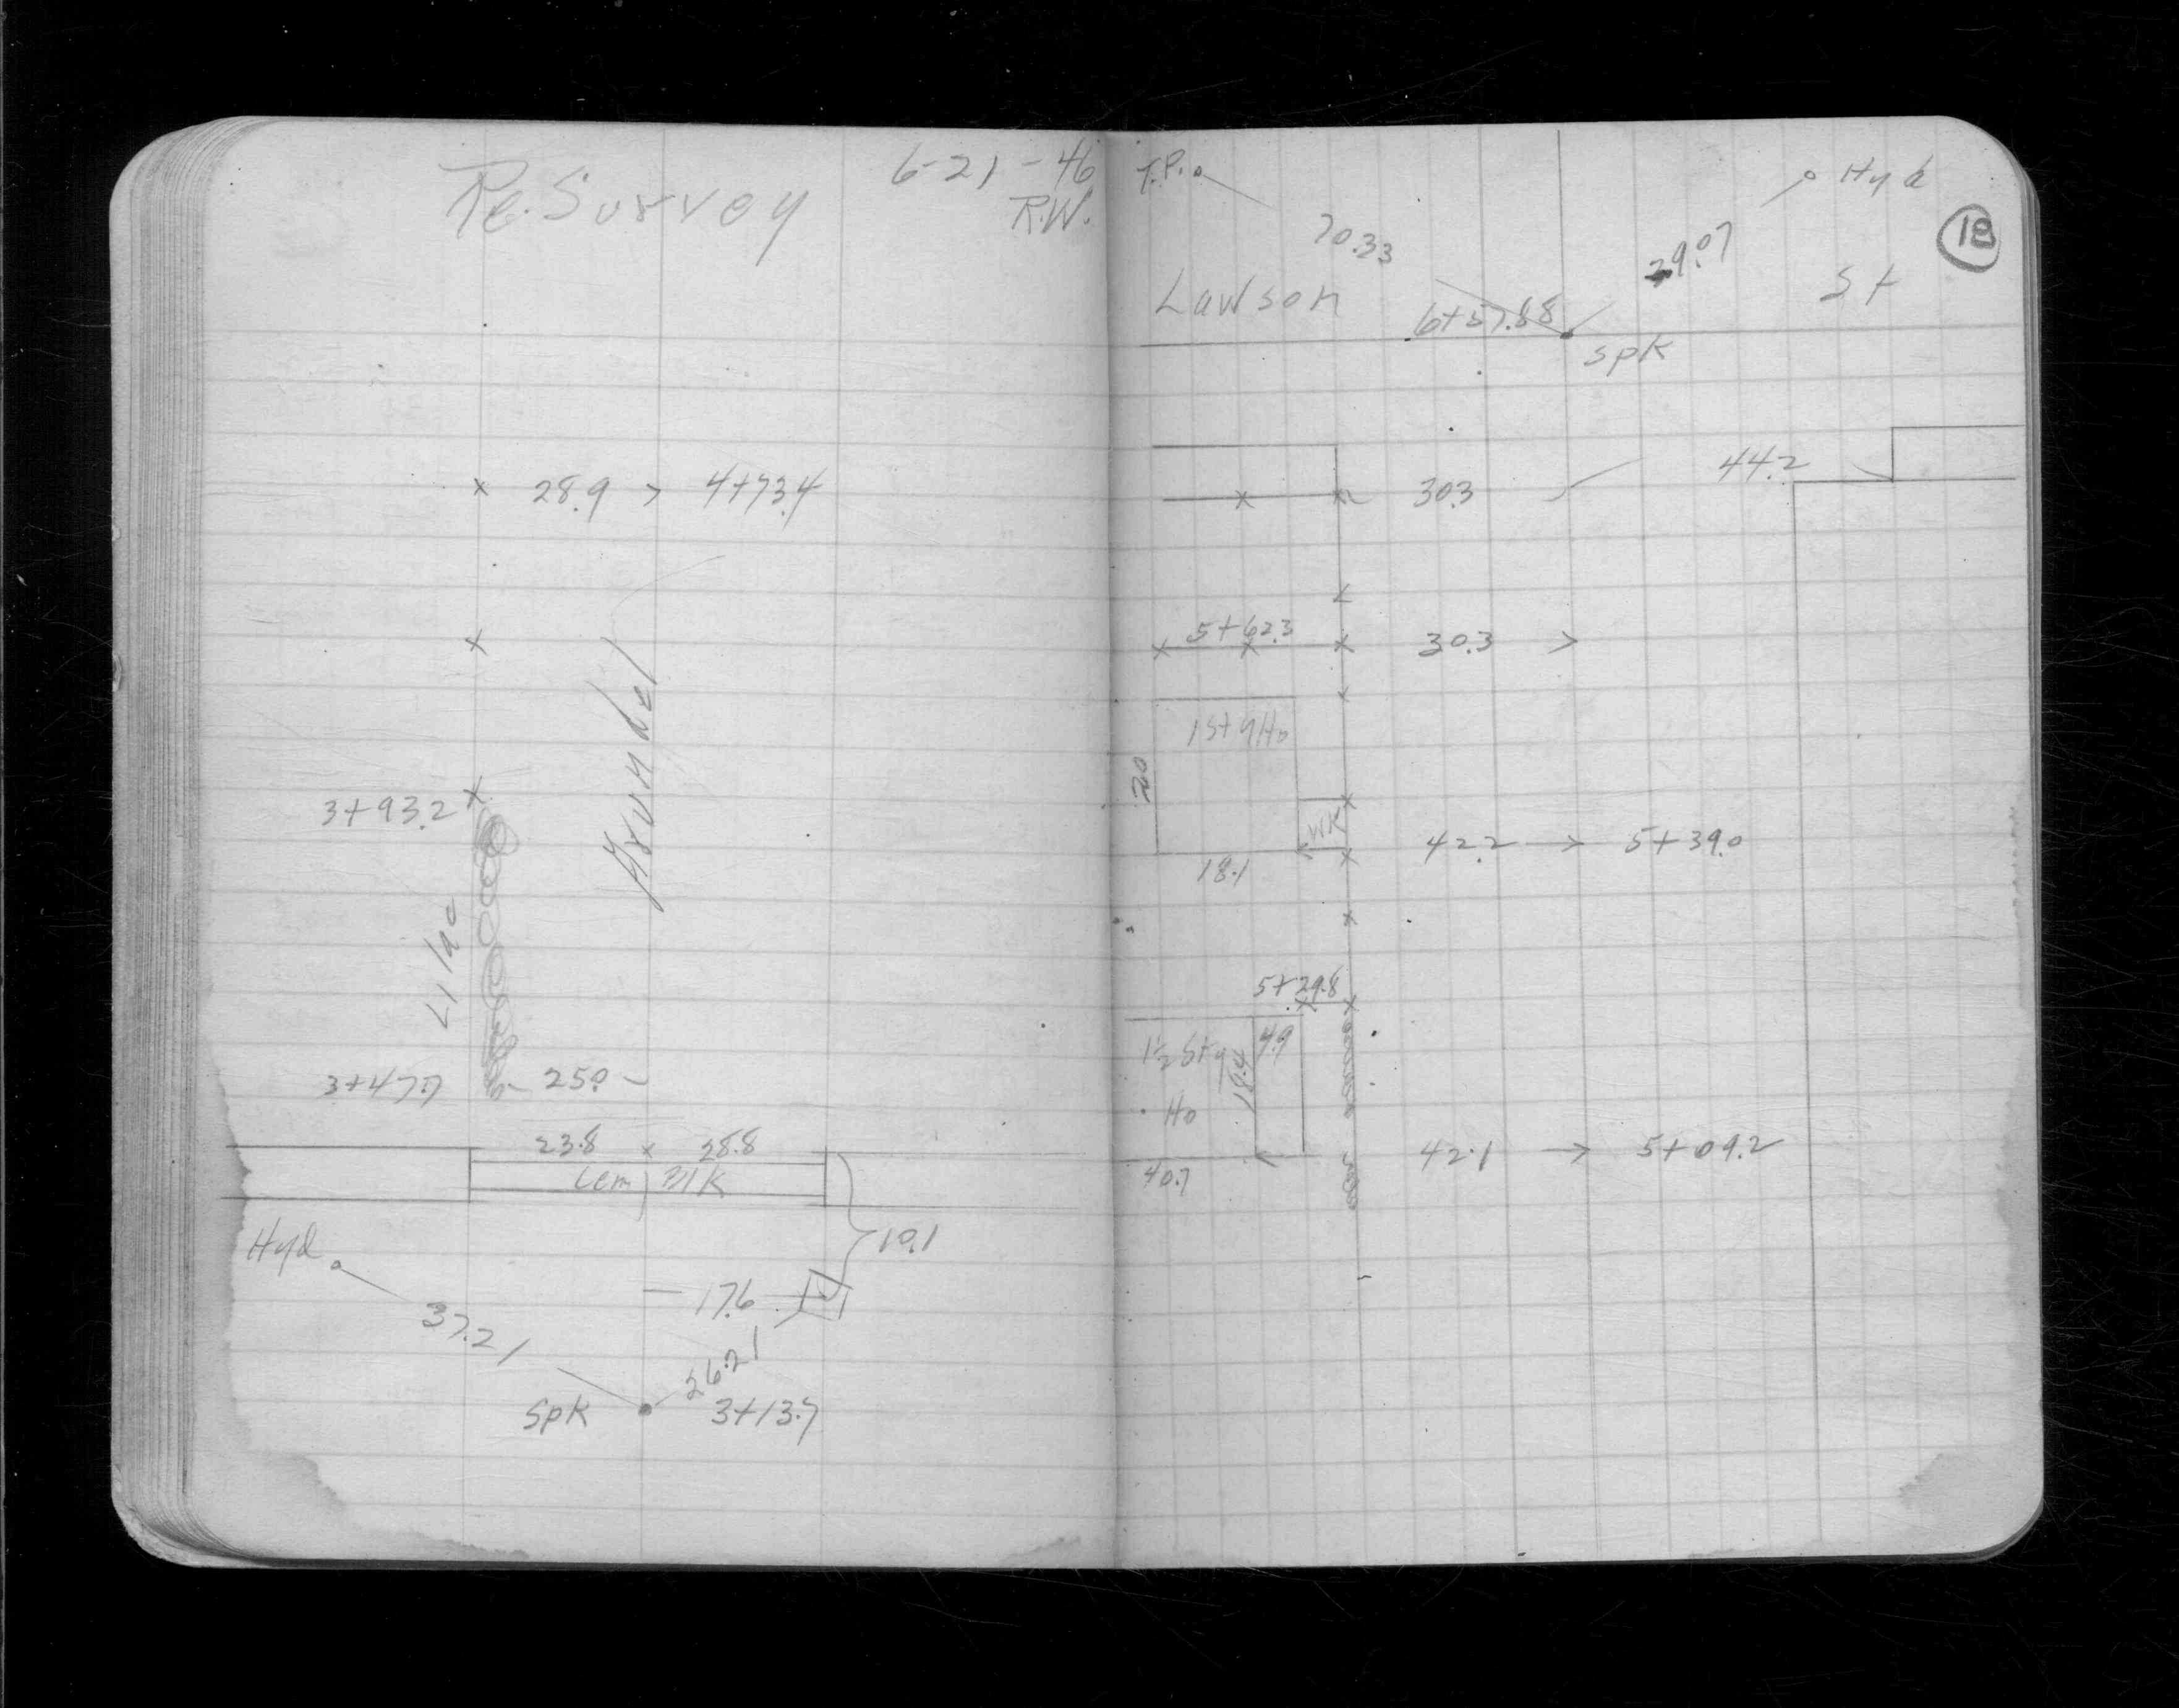 Re. Survey
6-21-46
R.W.
28.9 > 4+73.4
Arundel
3+93.2
Lilac
3+47.7
25.0
23.8 x 28.8
Cem Blk
10.1
Hyd
37.21
17.6
26.21
Spk
3+13.7
T.P.
Hyd
18
70.33
29.07
Lawson
St
6+57.88
spk
44.2
30.3
5+62.3
30.3
1 Sty Ho
20
WK
42.2 → 5+39.0
18.1
5+29.8
1½ Sty
Ho
18.4
4.9
42.1 → 5+09.2
40.7